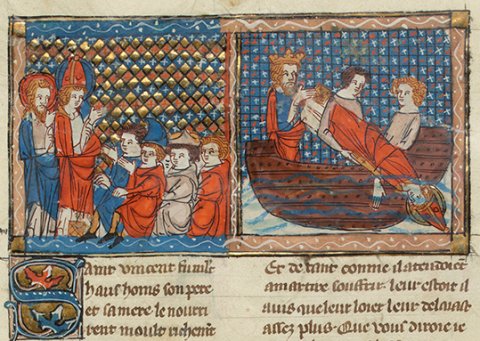 Saint vincent fu mlt
haus homs son pere
et sa mere le nourri
rent moult richemt
Et de tant comme il atendoiēt
a martire souffrir. leur estoit il
auis que leur loier leur delaiast
assez plus. Que vous diroie ie